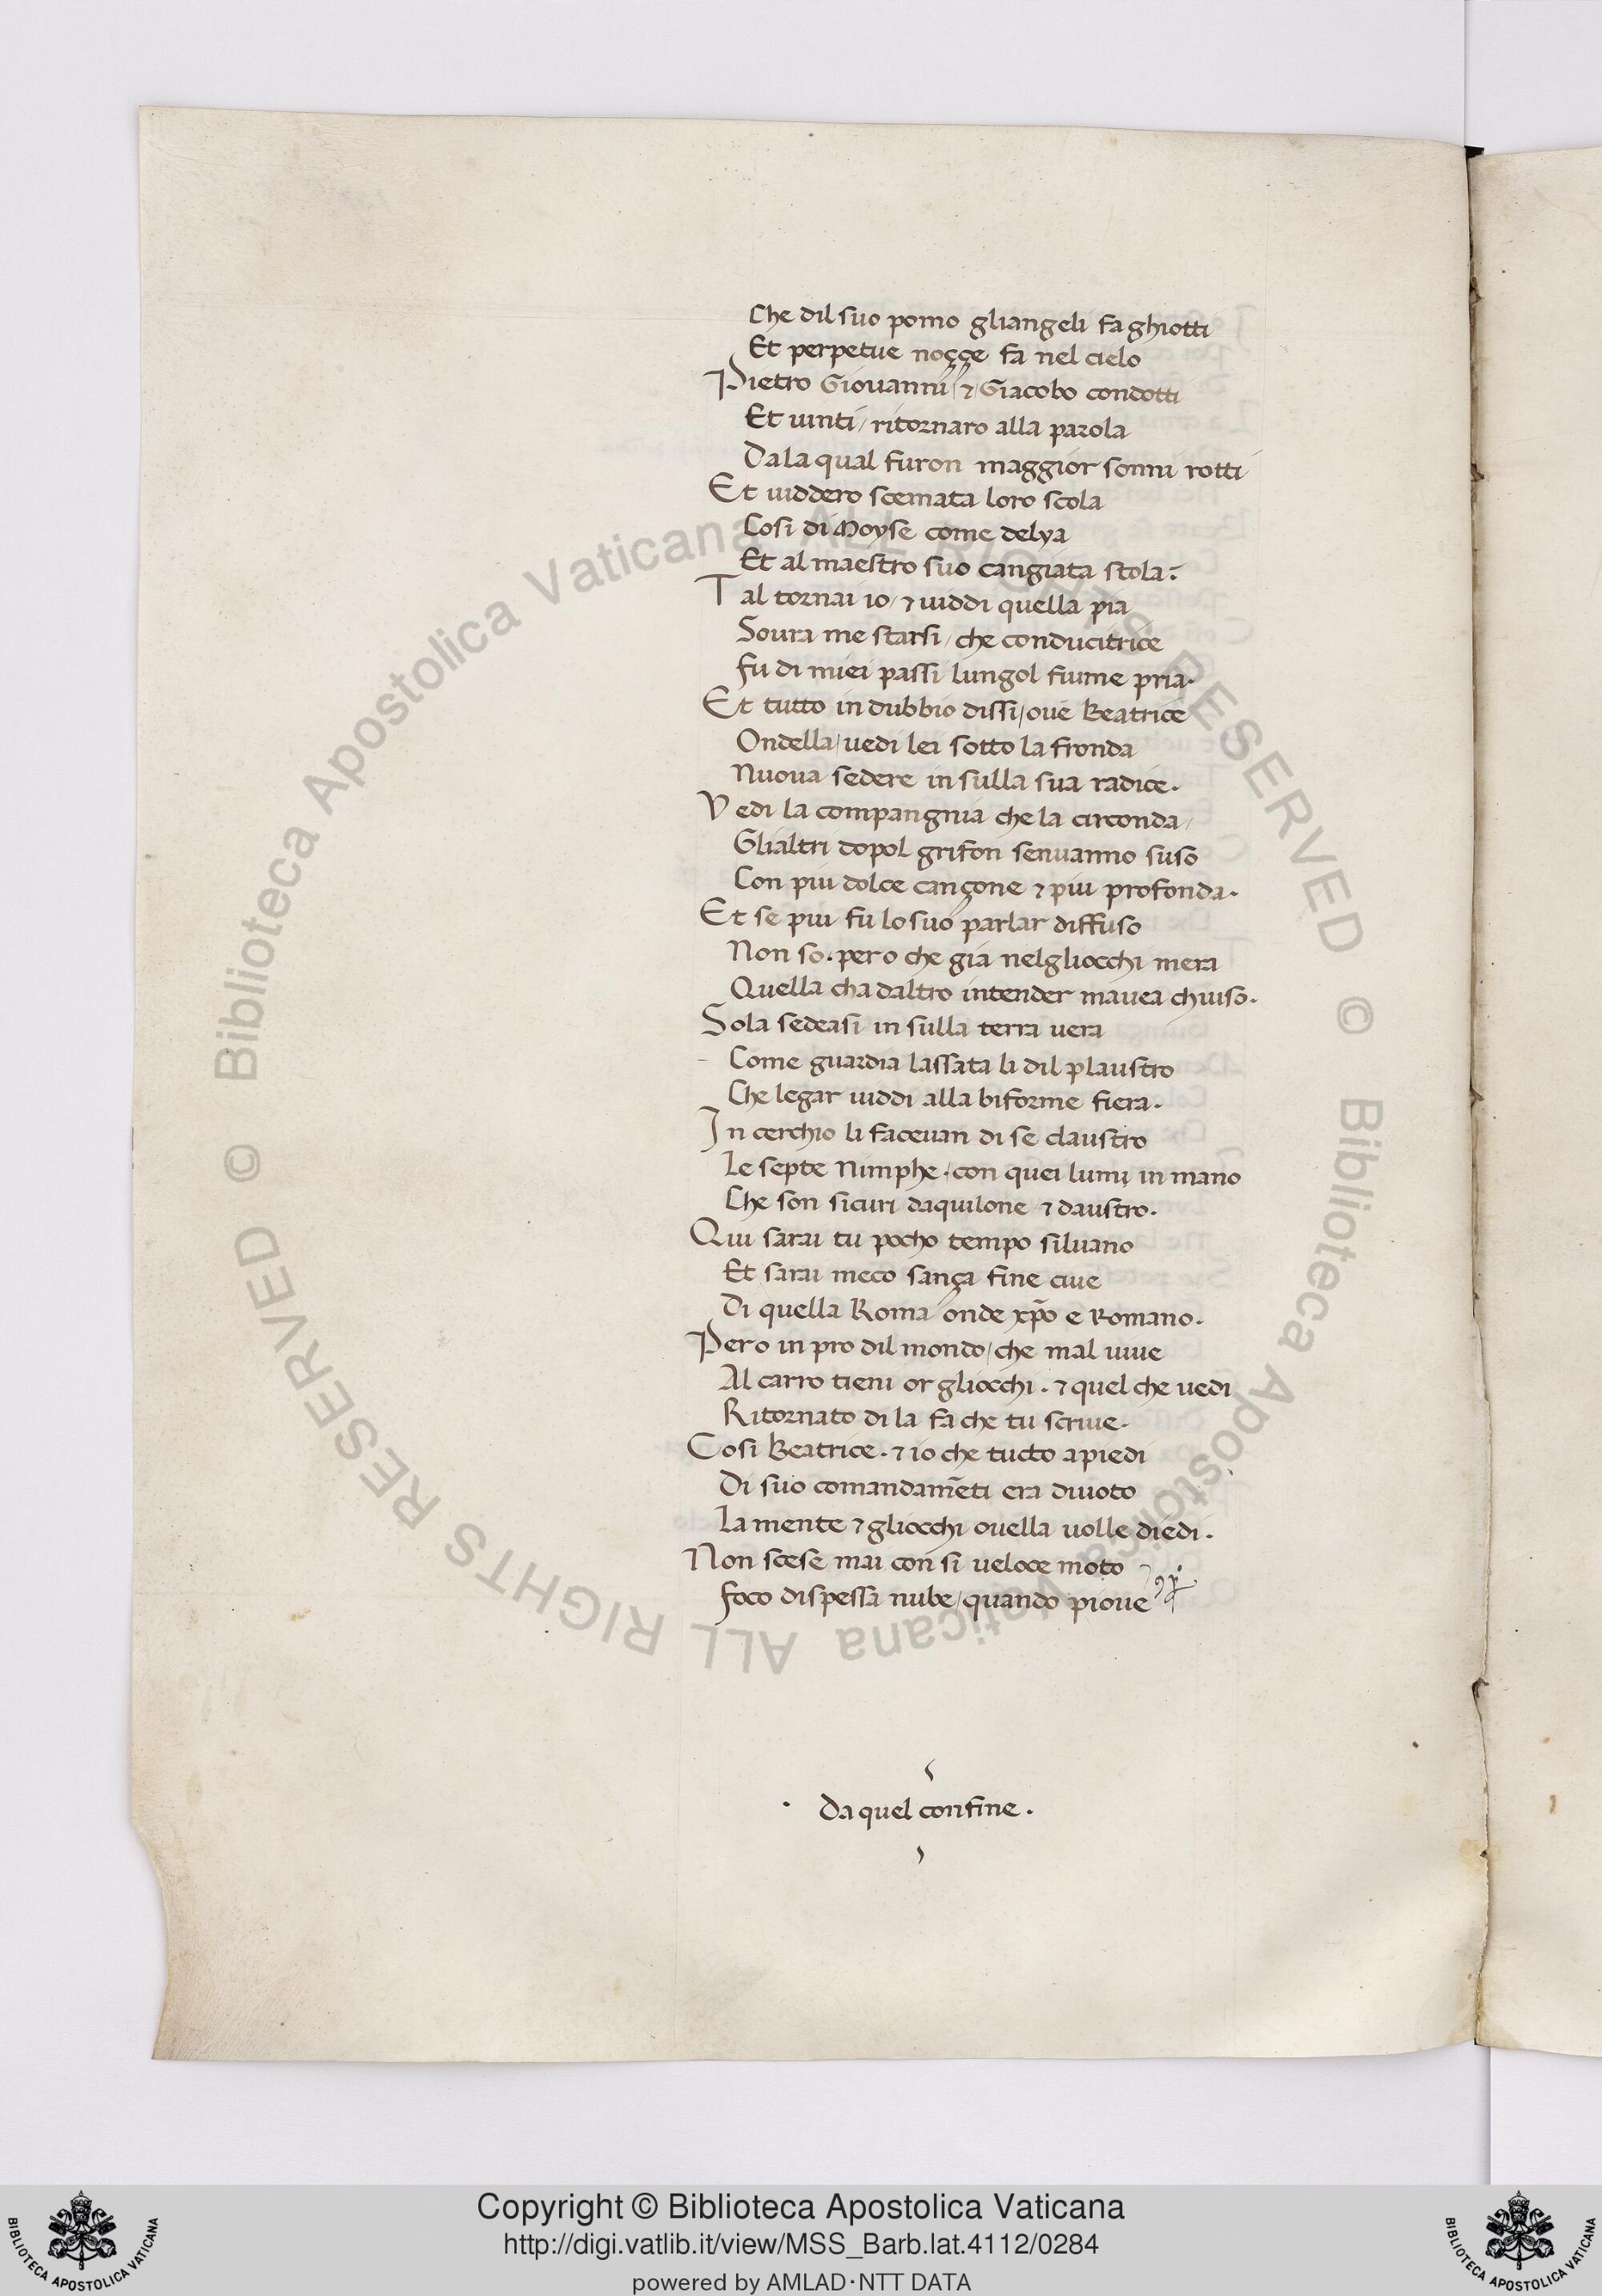 Che dil suo pomo gliangeli fa ghiotti
Et perpetue noççe fa nel cielo
Pietro Giouanni / ⁊ Giacobo condotti
Et uinti / ritornaro alla parola
Da la qual furon maggior sonni rotti
Et uiddero scemata loro scola
Cosi di Moyse come delya
Et al maestro suo cangiata stola.
Tal tornai io / ⁊ uiddi quella pia
Soura me starsi / che conducitrice
fu di miei passi lungol fiume pria.
Et tutto in dubbio dissi / oue Beatrice
Ondella / uedi lei sotto la fronda
Nuoua sedere in sulla sua radice.
Vedi la compangnia che la circonda /
Glialtri dopol grifon senuanno suso
Con piu dolce cançone ⁊ piu profonda.
Et se piu fu lo suo parlar diffuso
Non so. pero che gia nelgliocchi mera
Quella cha daltro intender mauea chiuso.
Sola sedeasi in sulla terra uera
Come guardia lassata li dil plaustro
Che legar uiddi alla biforme fiera.
In cerchio li faceuan di se claustro
Le septe Nimphe. con quei lumi in mano
Che son sicuri daquilone ⁊ daustro.
Qui sarai tu pocho tempo siluano
Et sarai meco sança fine ciue
Di quella Roma onde xp̄o e Romano.
Pero in pro dil mondo / che mal uiue
Al carro tieni or gliocchi. ⁊ quel che uedi
Ritornato di la fa che tu scriue.
Cosi Beatrice. ⁊ io che tucto apiedi
Di suo comandam̄eti era diuoto
La mente ⁊ gliocchi ouella uolle diedi.
Non scese mai con si ueloce moto
foco di spessa nube / quando pioue
Da quel confine.
© Biblioteca Apostolica Vaticana ALL RIGHTS RESERVED © Biblioteca Apostolica Vaticana ALL RIGHTS RESERVED
Copyright © Biblioteca Apostolica Vaticana
http://digi.vatlib.it/view/MSS_Barb.lat.4112/0284
powered by AMLAD·NTT DATA
BIBLIOTECA APOSTOLICA VATICANA
BIBLIOTECA APOSTOLICA VATICANA